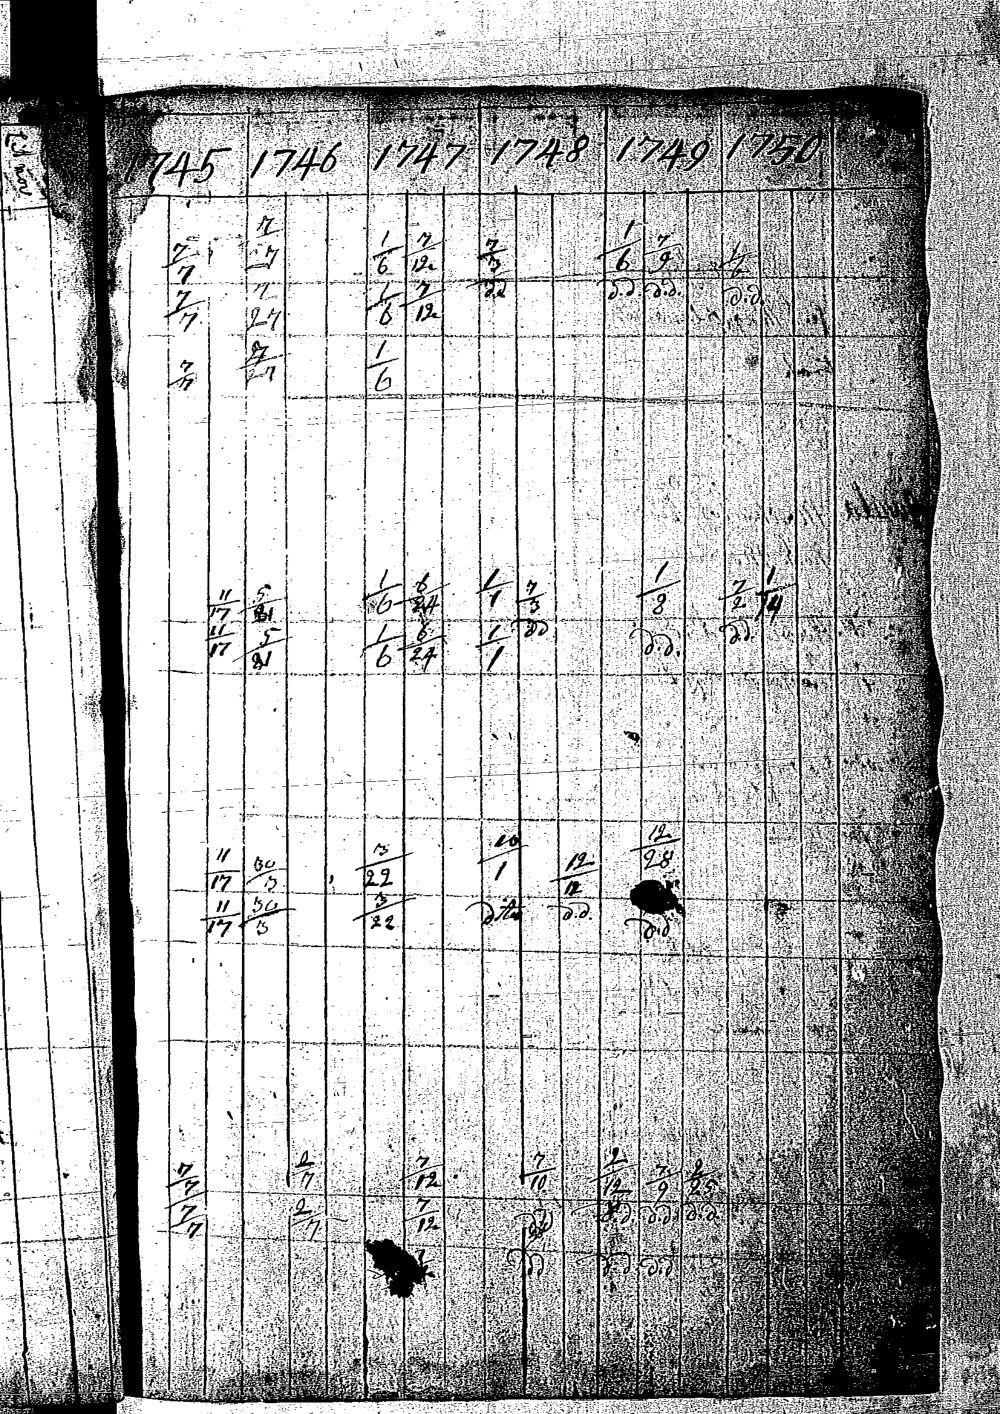 1745 1746 1747 1748 1749 1750
7/7 7/27 1/6 7/12 7/3 1/6 7/9 1/6
7/7 7/27 1/6 7/12 d.d d.d. d.d. d.d.
7/7 7/27 1/6
11/17 5/21 1/6 6/24 1/1 7/3 1/8 7/2 1/14
11/17 5/21 1/6 6/24 1/1 dd d.d. dd.
11/17 30/3 3/22 10/1 12/12 12/28
11/17 30/3 3/22 dto d.d. d.d.
7/7 2/7 7/12 7/10 2/12 7/9 2/25
7/7 2/7 7/12 dd d.d. d.d. d.d.
7 dd d.d. d.d.